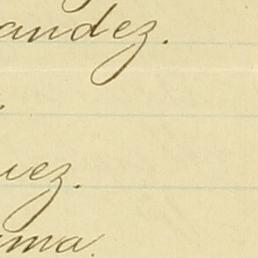 andez.
uez.
ma.